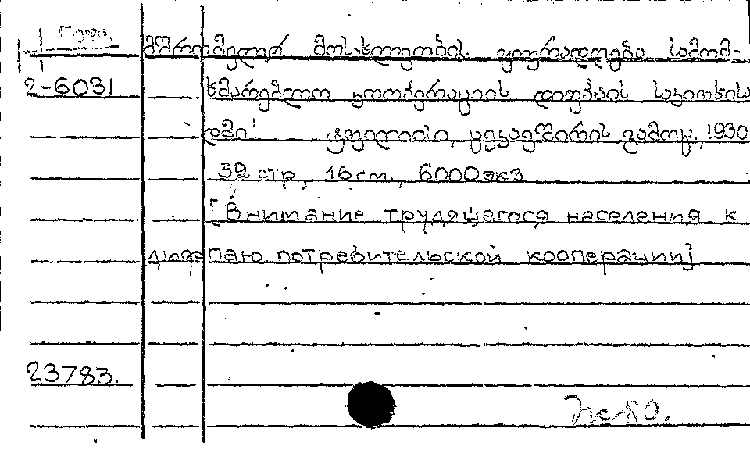 Груз.
მშრომელურ მოსახლეობის ყურადღება სამომ-
2-6031 ხმარებლო კოოპერაციის დიფპაის საკითხისა
დმი! ტფილისი, ცეკავშირის გამოც., 1930
32 стр, 16 см., 6000 экз
[Внимание трудящегося населения к
паю потребительской кооперации]
23783.